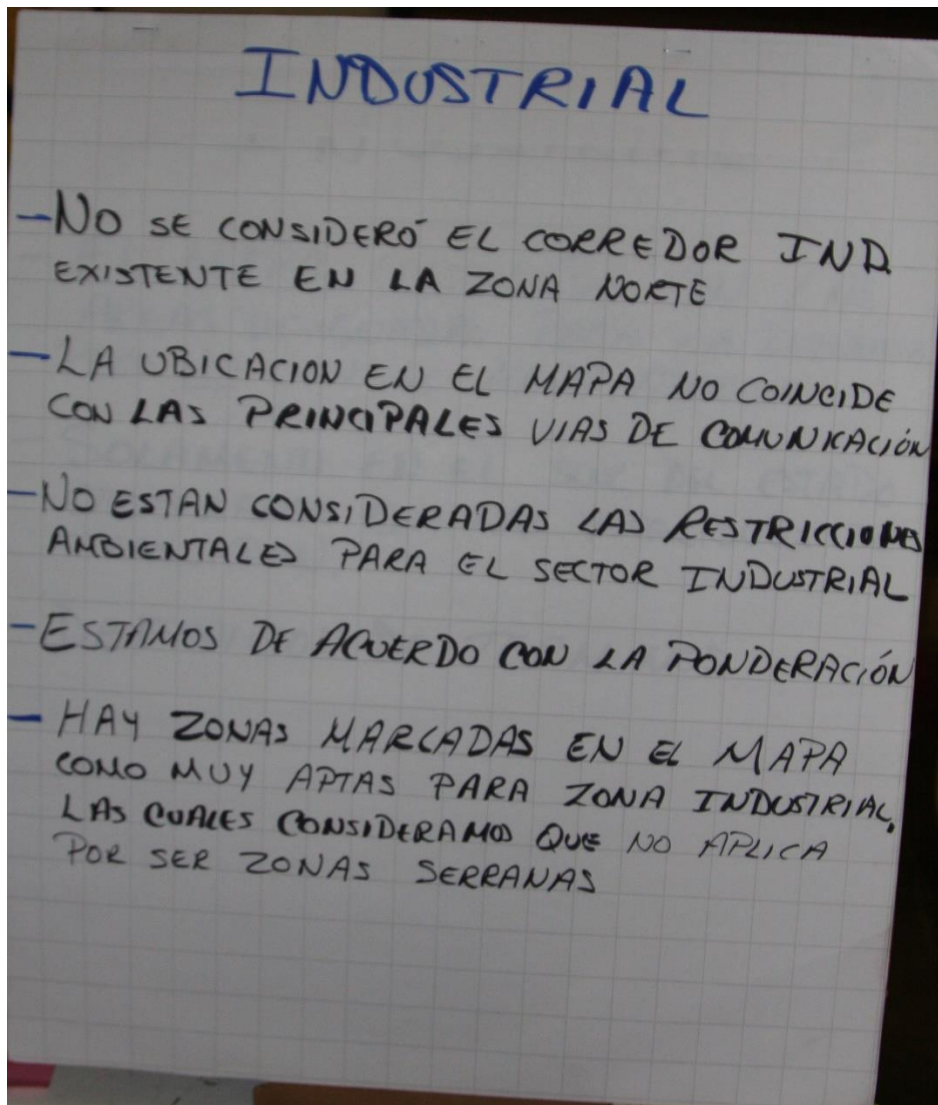 INDUSTRIAL
- NO SE CONSIDERÓ EL CORREDOR IND.
EXISTENTE EN LA ZONA NORTE
- LA UBICACION EN EL MAPA NO COINCIDE
CON LAS PRINCIPALES VIAS DE COMUNICACIÓN
- NO ESTAN CONSIDERADAS LAS RESTRICCIONES
AMBIENTALES PARA EL SECTOR INDUSTRIAL
- ESTAMOS DE ACUERDO CON LA PONDERACIÓN
- HAY ZONAS MARCADAS EN EL MAPA
COMO MUY APTAS PARA ZONA INDUSTRIAL,
LAS CUALES CONSIDERAMOS QUE NO APLICA
POR SER ZONAS SERRANAS